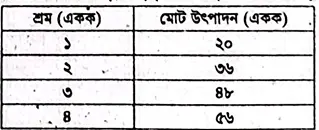 শ্রম (একক) মোট উৎপাদন (একক)
১ ২০
২ ৩৬
৩ ৪৮
৪ ৫৬